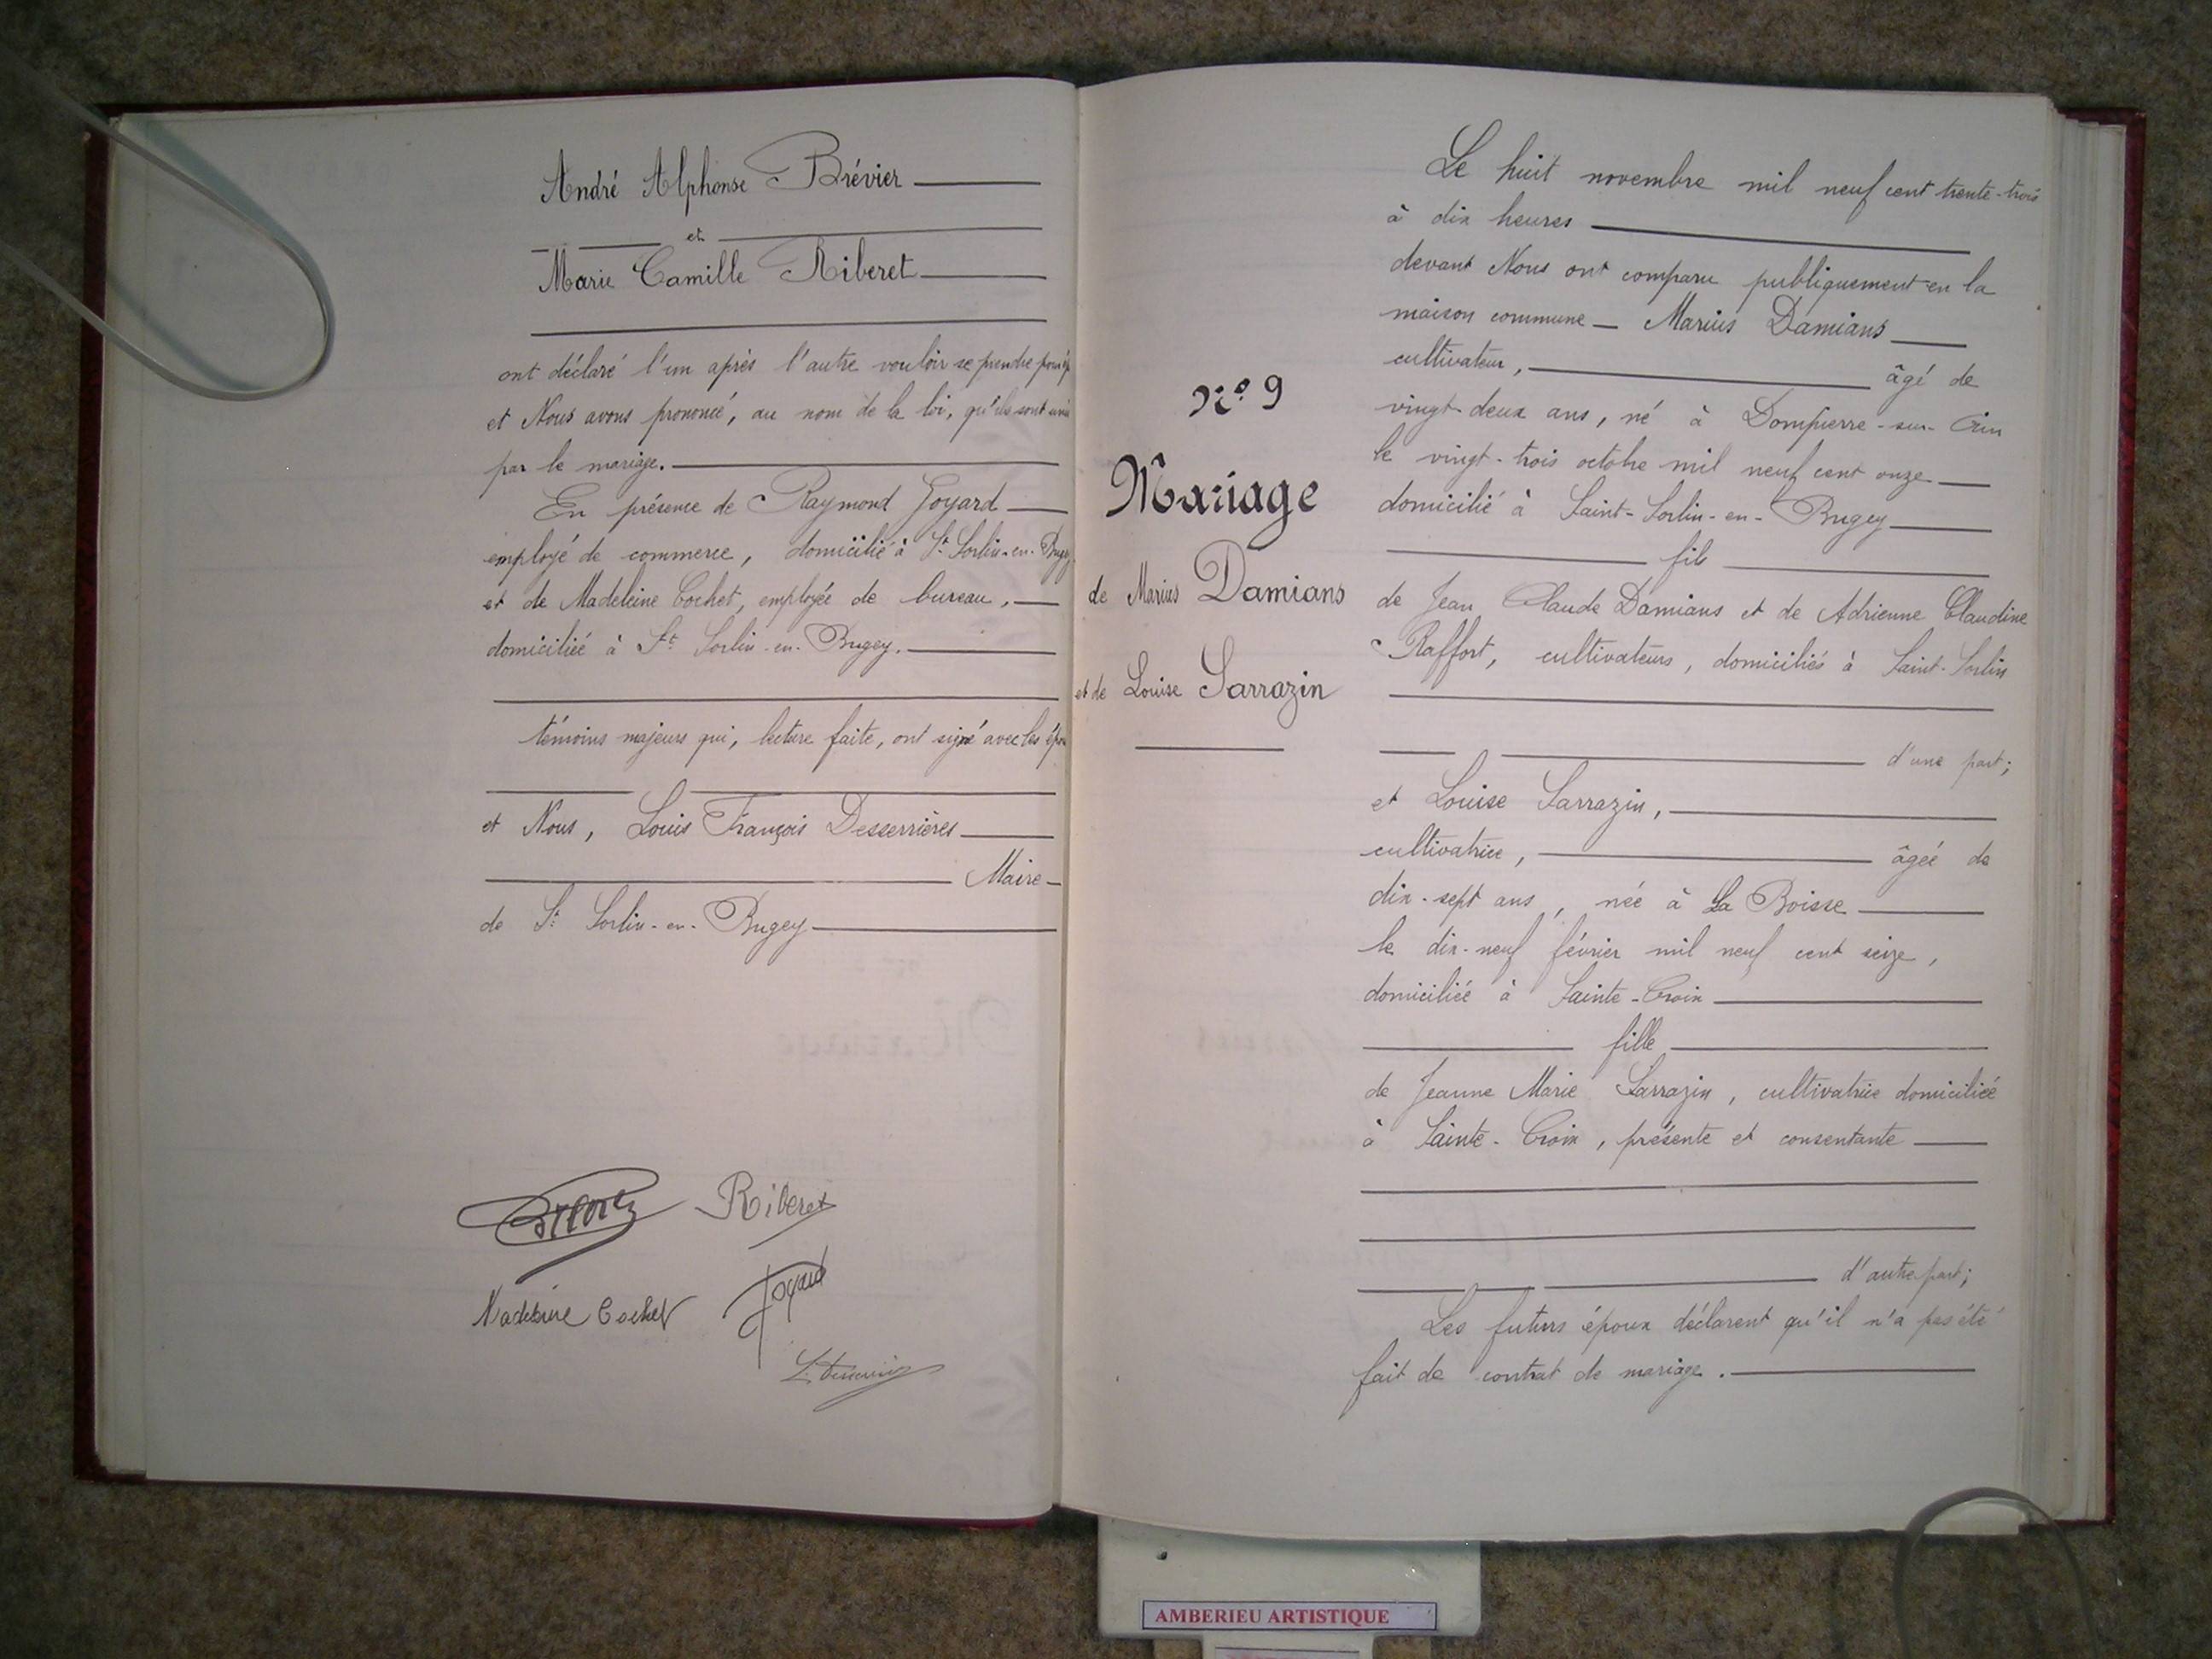 André Alphonse Brévier
et
Marie Camille Riberet
ont déclaré l'un après l'autre vouloir se prendre pour ép
et Nous avons prononcé, au nom de la loi, qu'ils sont unis
par le mariage.
En présence de Raymond Goyard
employé de commerce, domicilié à St Sorlin-en-Bugey
et de Madeleine Cochet, employée de bureau,
domiciliée à St Sorlin-en-Bugey.
témoins majeurs qui, lecture faite, ont signé avec les épou
et Nous, Louis François Desserrières
Maire
de St Sorlin-en-Bugey
Riberet
Madeleine Cochet
N° 9
Mariage
de Marius Damians
et de Louise Sarrazin
Le huit novembre mil neuf cent trente-trois
à dix heures
devant Nous ont comparu publiquement en la
maison commune - Marius Damians
cultivateur, âgé de
vingt-deux ans, né à Dompierre-sur-Ain
le vingt-trois octobre mil neuf cent onze
domicilié à Saint-Sorlin-en-Bugey
fils
de Jean Claude Damians et de Adrienne Claudine
Raffort, cultivateurs, domiciliés à Saint-Sorlin
d'une part;
et Louise Sarrazin,
cultivatrice, âgée de
dix-sept ans, née à La Boisse
le dix-neuf février mil neuf cent seize,
domiciliée à Sainte-Croix
fille
de Jeanne Marie Sarrazin, cultivatrice domiciliée
à Sainte-Croix, présente et consentante
d'autre part;
Les futurs époux déclarent qu'il n'a pas été
fait de contrat de mariage.
AMBERIEU ARTISTIQUE